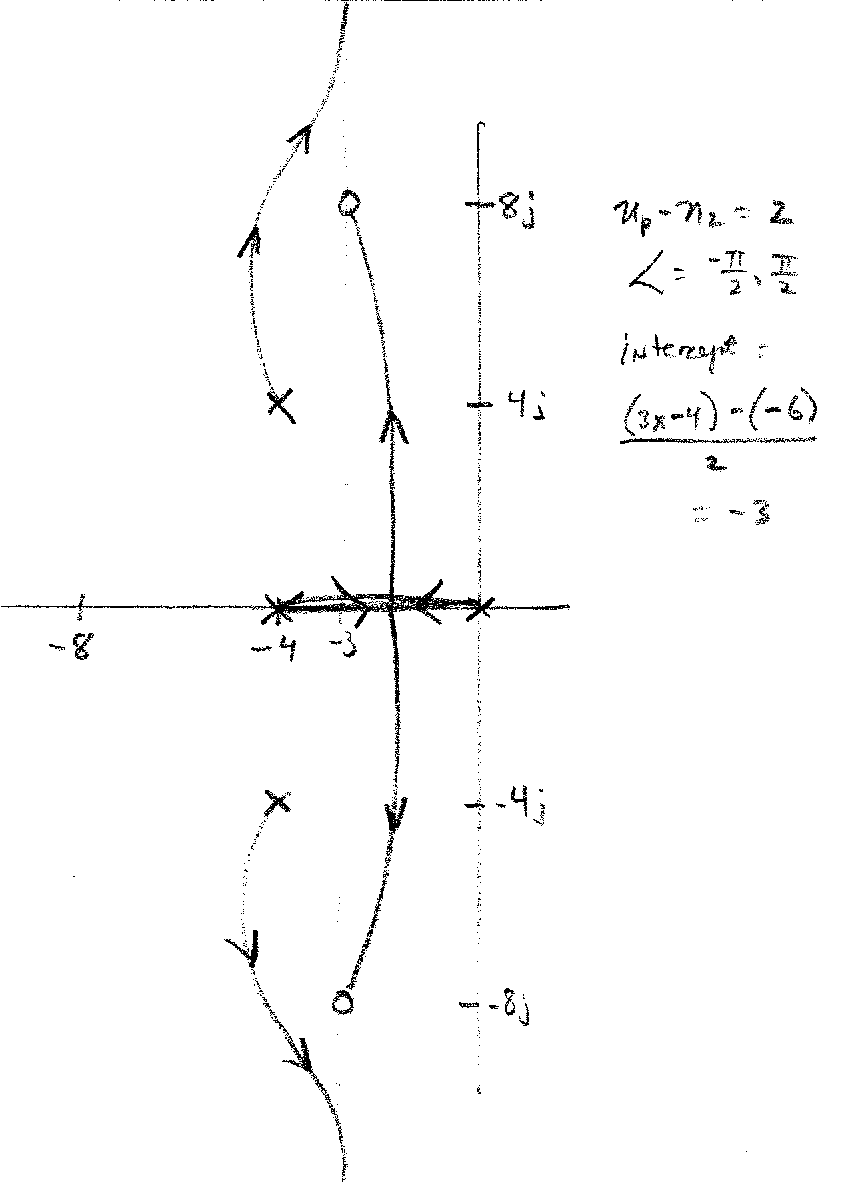 8j
4j
-8
-4
-3
-4j
-8j
n_p - n_z = 2
∠ = -π/2, π/2
intercept =
(3x-4) - (-6)
2
= -3